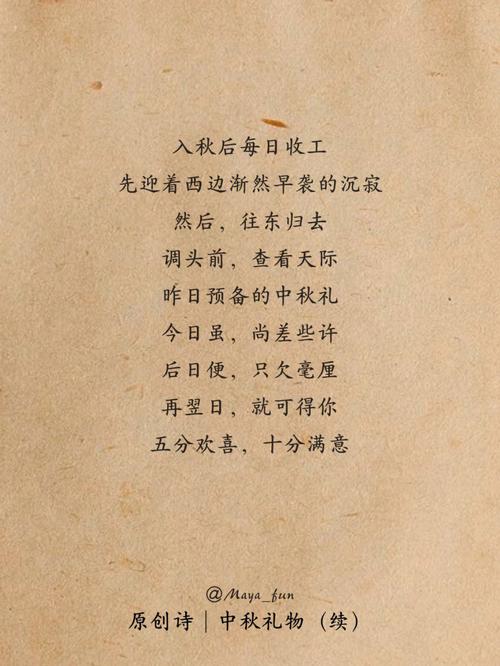 入秋后每日收工
先迎着西边渐然早袭的沉寂
然后，往东归去
调头前，查看天际
昨日预备的中秋礼
今日虽，尚差些许
后日便，只欠毫厘
再翌日，就可得你
五分欢喜，十分满意
@Maya_fun
原创诗｜中秋礼物（续）